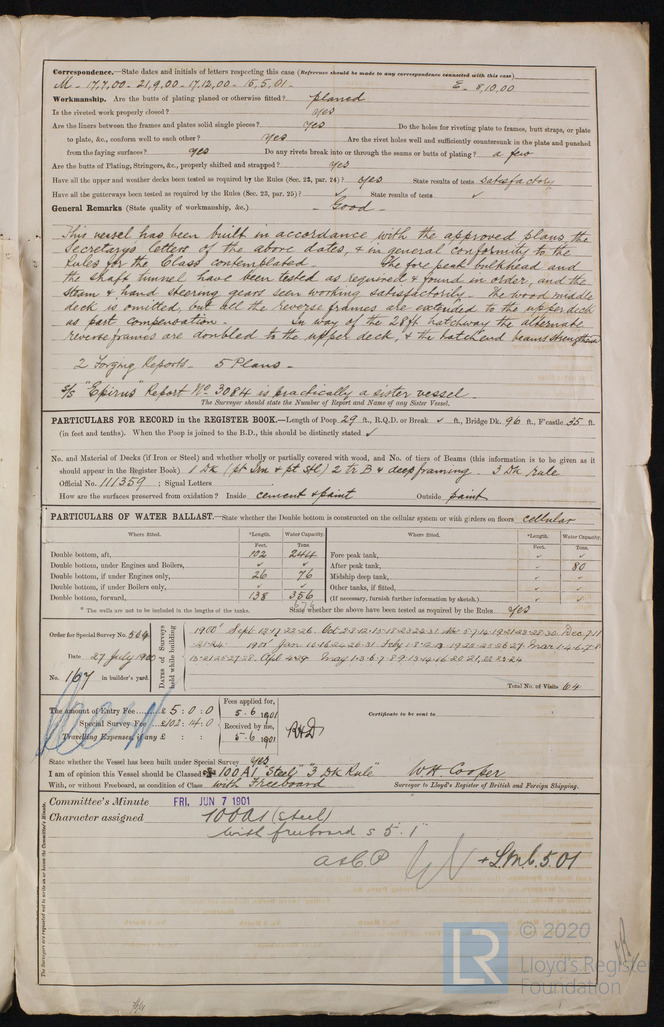 Correspondence.—State dates and initials of letters respecting this case (Reference should be made to any correspondence connected with this case)
M - 17.7.00 - 21.9.00 - 17.12.00 - 15.5.01 - E - 8.10.00
Workmanship. Are the butts of plating planed or otherwise fitted? planed
Is the riveted work properly closed? yes
Are the liners between the frames and plates solid single pieces? yes Do the holes for riveting plate to frames, butt straps, or plate
to plate, &c., conform well to each other? yes Are the rivet holes well and sufficiently countersunk in the plate and punched
from the faying surfaces? yes Do any rivets break into or through the seams or butts of plating? a few
Are the butts of Plating, Stringers, &c., properly shifted and strapped? yes
Have all the upper and weather decks been tested as required by the Rules (Sec. 23, par. 24)? yes State results of tests satisfactory
Have all the gutterways been tested as required by the Rules (Sec. 23, par. 25)? ✓ State results of tests ✓
General Remarks (State quality of workmanship, &c.) - Good -
This vessel has been built in accordance with the approved plans, the
Secretary's letters of the above dates, & in general conformity to the
Rules for the Class contemplated - The fore peak bulkhead and
the shaft tunnel have been tested as required & found in order, and the
steam & hand steering gears seen working satisfactorily - The wood middle
deck is omitted, but all the reverse frames are extended to the upper deck
as part compensation - In way of the 28 ft hatchway the alternate
reverse frames are doubled to the upper deck, & the hatch end beams strengthened
2 Forging Reports - 5 Plans -
S/S "Epirus" Report No. 3084 is practically a sister vessel -
The Surveyor should state the Number of Report and Name of any Sister Vessel.
PARTICULARS FOR RECORD in the REGISTER BOOK.—Length of Poop 29 ft., R.Q.D. or Break ✓ ft., Bridge Dk. 96 ft., F'castle 35 ft.
(in feet and tenths). When the Poop is joined to the B.D., this should be distinctly stated ✓
No. and Material of Decks (if Iron or Steel) and whether wholly or partially covered with wood, and No. of tiers of Beams (this information is to be given as it
should appear in the Register Book) 1 Dk (pt Irn & pt Stl) 2 tr B & deep framing - 3 Dk rule
Official No. 111359 ; Signal Letters
How are the surfaces preserved from oxidation? Inside cement & paint Outside paint
PARTICULARS OF WATER BALLAST.—State whether the Double bottom is constructed on the cellular system or with girders on floors cellular
Where fitted. *Length. Water Capacity. Where fitted. *Length. Water Capacity.
Feet. Tons. Feet. Tons.
Double bottom, aft, 102 244 Fore peak tank, ✓ ✓
Double bottom, under Engines and Boilers, ✓ ✓ After peak tank, ✓ 80
Double bottom, if under Engines only, 26 76 Midship deep tank, ✓ ✓
Double bottom, if under Boilers only, ✓ ✓ Other tanks, if fitted, ✓ ✓
Double bottom, forward, 138 356 (If necessary, furnish further information by sketch.) ✓ ✓
676
* The wells are not to be included in the lengths of the tanks. State whether the above have been tested as required by the Rules yes
Order for Special Survey No. 564
Date 27 July 1900
No. 167 in builder's yard.
DATES of Surveys held while building
Total No. of Visits 64
The amount of Entry Fee £ 5 : 0 : 0
Special Survey Fee £102 : 14 : 0
Travelling Expenses, if any £ : :
Fees applied for,
5 - 6 1901
Received by me,
5 - 6 1901
Certificate to be sent to
State whether the Vessel has been built under Special Survey yes
I am of opinion this Vessel should be Classed ✠ 100A1 "Steel" "3 Dk Rule" W. H. Cooper
With, or without Freeboard, as condition of Class with Freeboard Surveyor to Lloyd's Register of British and Foreign Shipping.
Committee's Minute FRI. JUN 7 1901
Character assigned 100A1 (steel)
with freeboard s 5.1"
A & C. P
+ L.M.C. 5.01
The Surveyors are requested not to write on or below the Committee's Minute.
© 2020
LR
Lloyd's Register
Foundation